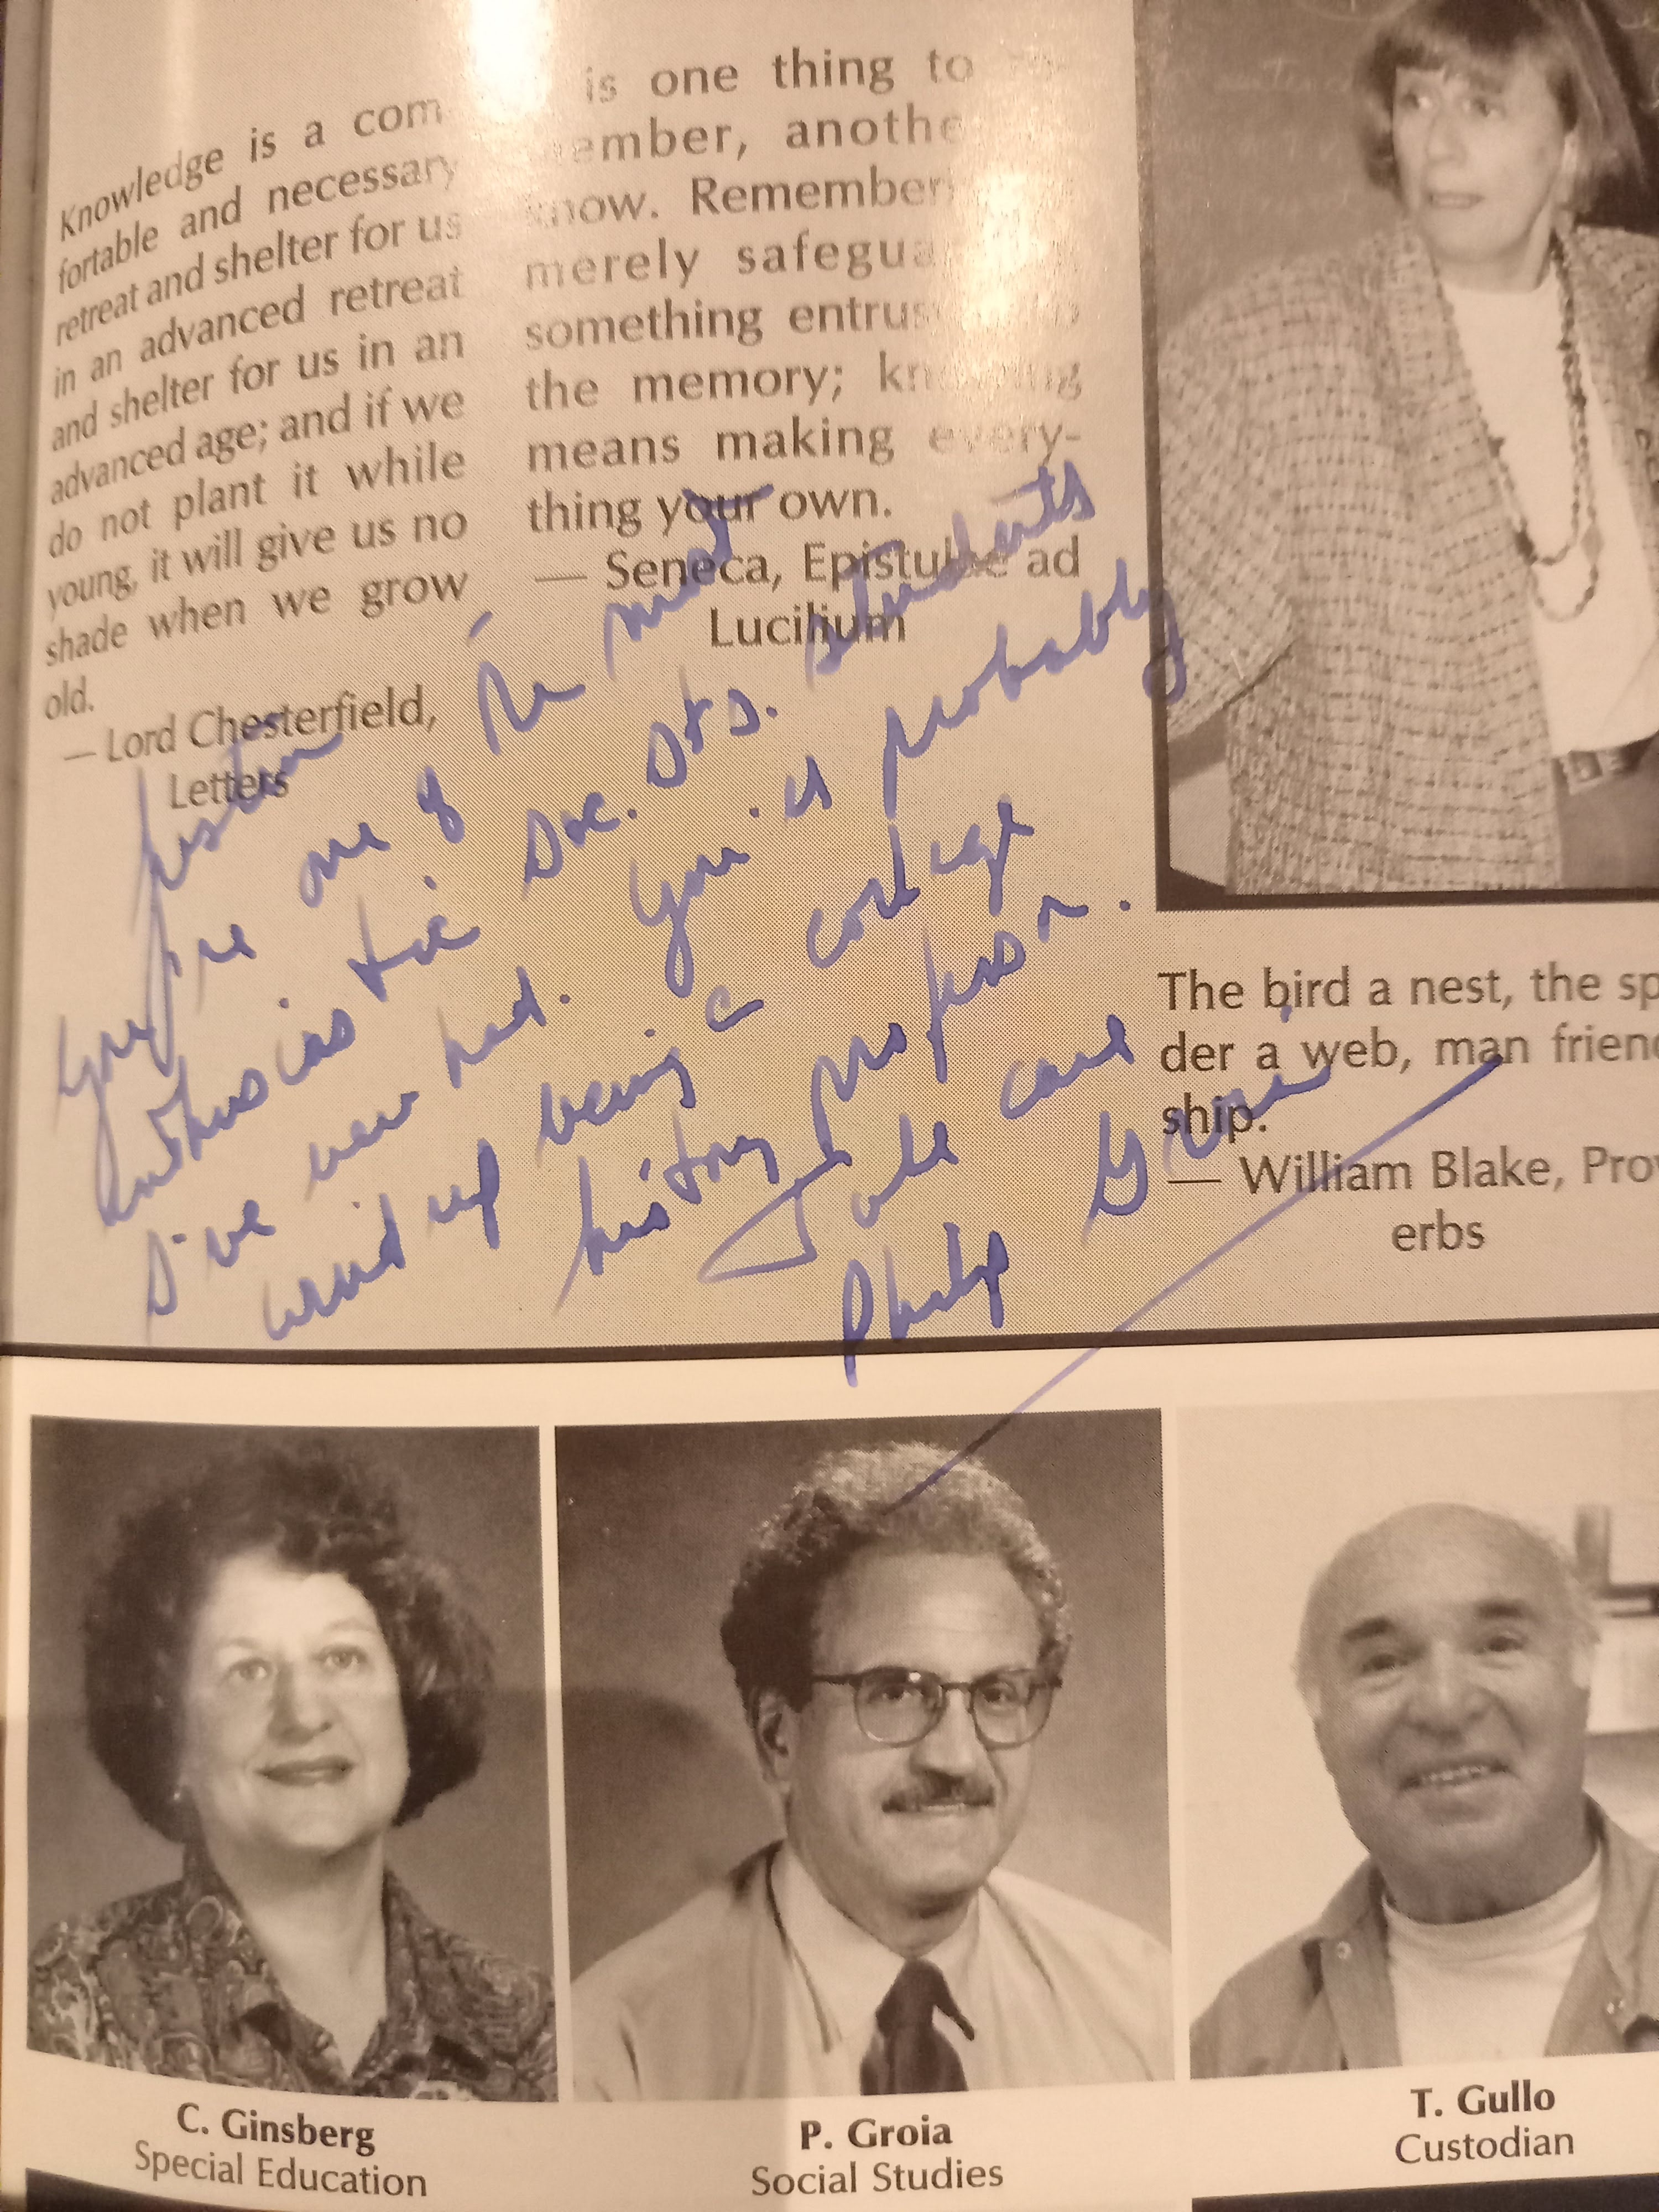 Knowledge is a com-
fortable and necessary
retreat and shelter for us
in an advanced retreat
and shelter for us in an
advanced age; and if we
do not plant it while
young, it will give us no
shade when we grow
old.
— Lord Chesterfield,
Letters
is one thing to
ember, anothe
know. Remember
merely safegua
something entrus
the memory; knowing
means making every-
thing your own.
— Seneca, Epistulae ad
Lucilium
Justin
You're one of the most
enthusiastic Soc. Sts. students
I've ever had. You'll probably
wind up being a college
history professor.
Take care
Philip Groia
The bird a nest, the sp
der a web, man friend
ship.
— William Blake, Prov
erbs
C. Ginsberg
Special Education
P. Groia
Social Studies
T. Gullo
Custodian